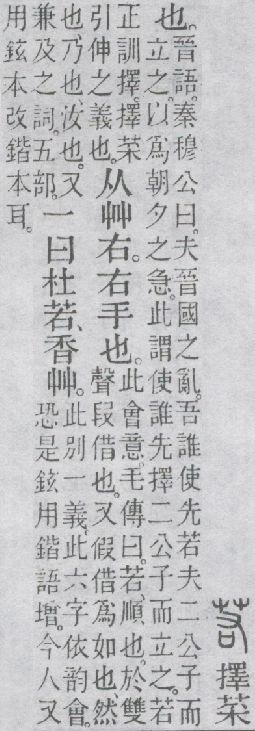 擇菜
也。
晉語。秦穆公曰。夫晉國之亂。吾誰使先若夫二公子而
立之。以爲朝夕之急。此謂使誰先擇二公子而立之。若
正訓擇。擇菜
引伸之義也。
从艸右。右手也。
此會意。毛傳曰。若、順也。於雙
聲段借也。又假借爲如也、然
也、乃也、汝也。又
兼及之詞。五部。
一曰杜若、香艸。
此別一義。此六字依韵會。
恐是鉉用鍇語增。今人又
用鉉本改鍇本耳。